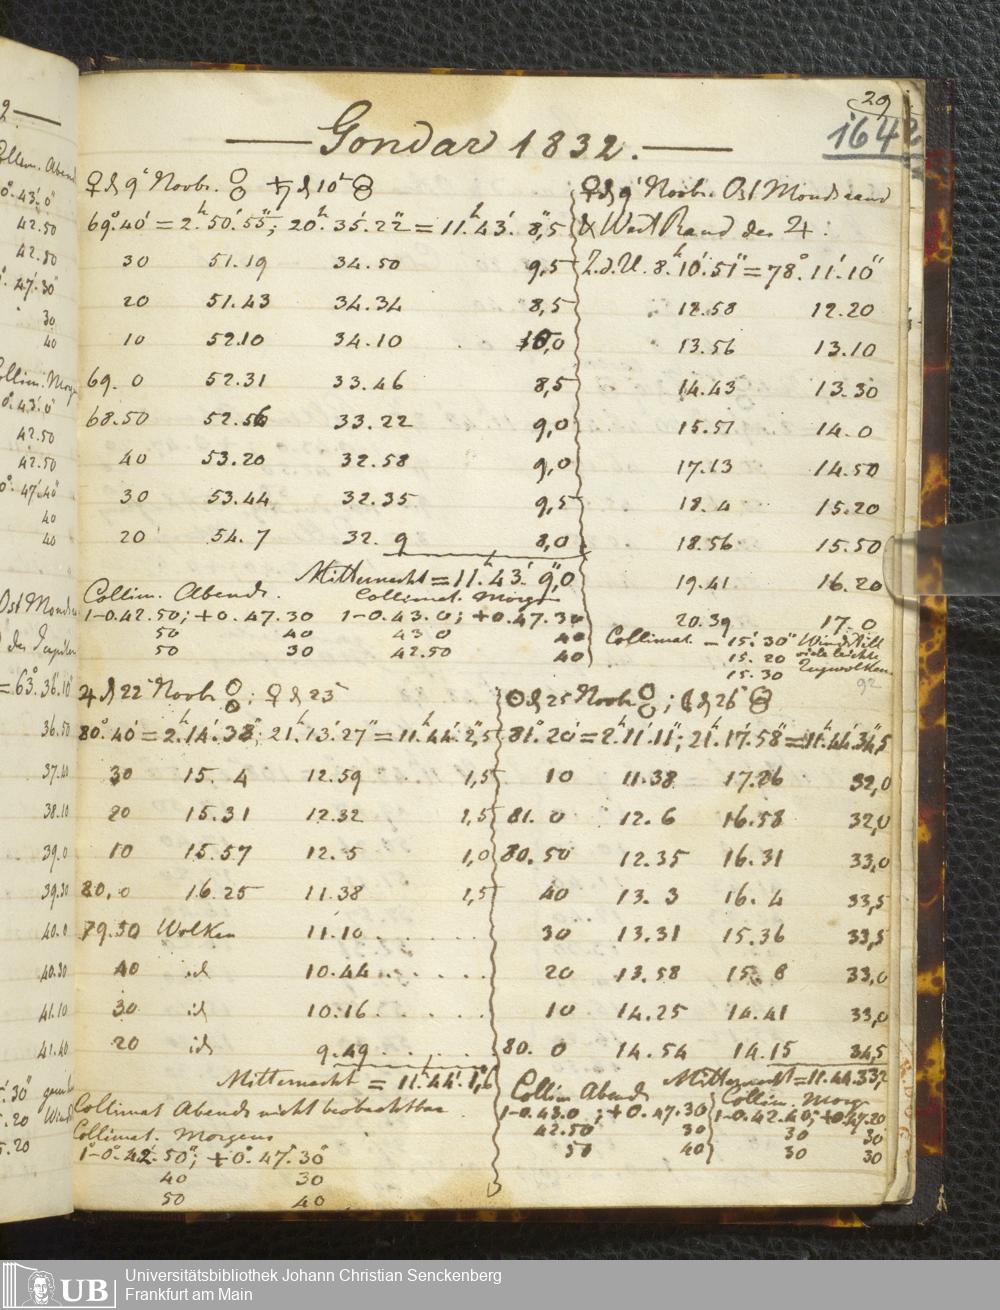 29
1642
— Gondar 1832. —
♀ d 9' Novbr. ♄ d 10'
69°.40' = 2h.50'.55"; 20h.35'.22" = 11h.43'. 8",5
30 51.19 34.50 9,5
20 51.43 34.34 8,5
10 52.10 34.10 10,0
69. 0 52.31 33.46 8,5
68.50 52.56 33.22 9,0
40 53.20 32.58 9,0
30 53.44 32.35 9,5
20 54. 7 32. 9 8,0
Mitternacht = 11h.43'. 9",0
Collim. Abends. Collimat. Morgens
1-0.42.50; +0.47.30 1-0.43.0; +0.47.30
50 40 43 0 40
50 30 42.50 40
♀ d 9' Novbr. Ost Mondrand
& West Rand des ♃:
Z.d.U. 8h.10'.51" = 78°.11'.10"
12.58 12.20
13.56 13.10
14.43 13.30
15.51 14.0
17.13 14.50
18. 4 15.20
18.56 15.50
19.41 16.20
20.39 17.0
Collimat. – 15'.30" Windstill
15.20 viele leichte
15.30 Zugwolken
92
♃ d 22' Novbr. ; ♀ d 23'
80°.40' = 2h.14'.38"; 21h.13'.27" = 11h.44'.2",5
30 15. 4 12.59 1,5
20 15.31 12.32 1,5
10 15.57 12.5 1,0
80. 0 16.25 11.38 1,5
79.50 Wolken 11.10 . . . . .
40 id 10.44 . . . . .
30 id 10.16 . . . . .
20 id 9.49 . . . . .
Mitternacht = 11h.44'.1",6
Collimat Abends nicht beobachtbar
Collimat. Morgens
1°-0°.42'.50"; +0°.47'.30"
40 30
50 40
☉ d 25 Novbr. ; ☾ d 26'
81°.20' = 2h.11'.11"; 21h.17'.58" = 11h.44'.34",5
10 11.38 17.26 32,0
81. 0 12. 6 16.58 32,0
80.50 12.35 16.31 33,0
40 13. 3 16. 4 33,5
30 13.31 15.36 33,5
20 13.58 15. 8 33,0
10 14.25 14.41 33,0
80. 0 14.54 14.15 34,5
Mitternacht = 11.44.33,2
Collim Abends Collim. Morgens
1-0.43.0; +0.47.30 1-0.42.40; +0.47.20
42.50 30 30 30
50 40 30 30
Collim. Abend
0°.43'.0"
42.50
42.50
47'.30"
30
40
Collim. Morgen
0°.43'.0"
42.50
42.50
0°.47'.40"
40
40
Ost Mondra
des Jupiter
= 63°.36'.10"
36.50
37.40
38.10
39.0
39.30
40.0
40.30
41.10
41.40
30"
.20 Wind
.20
UB
Universitätsbibliothek Johann Christian Senckenberg
Frankfurt am Main